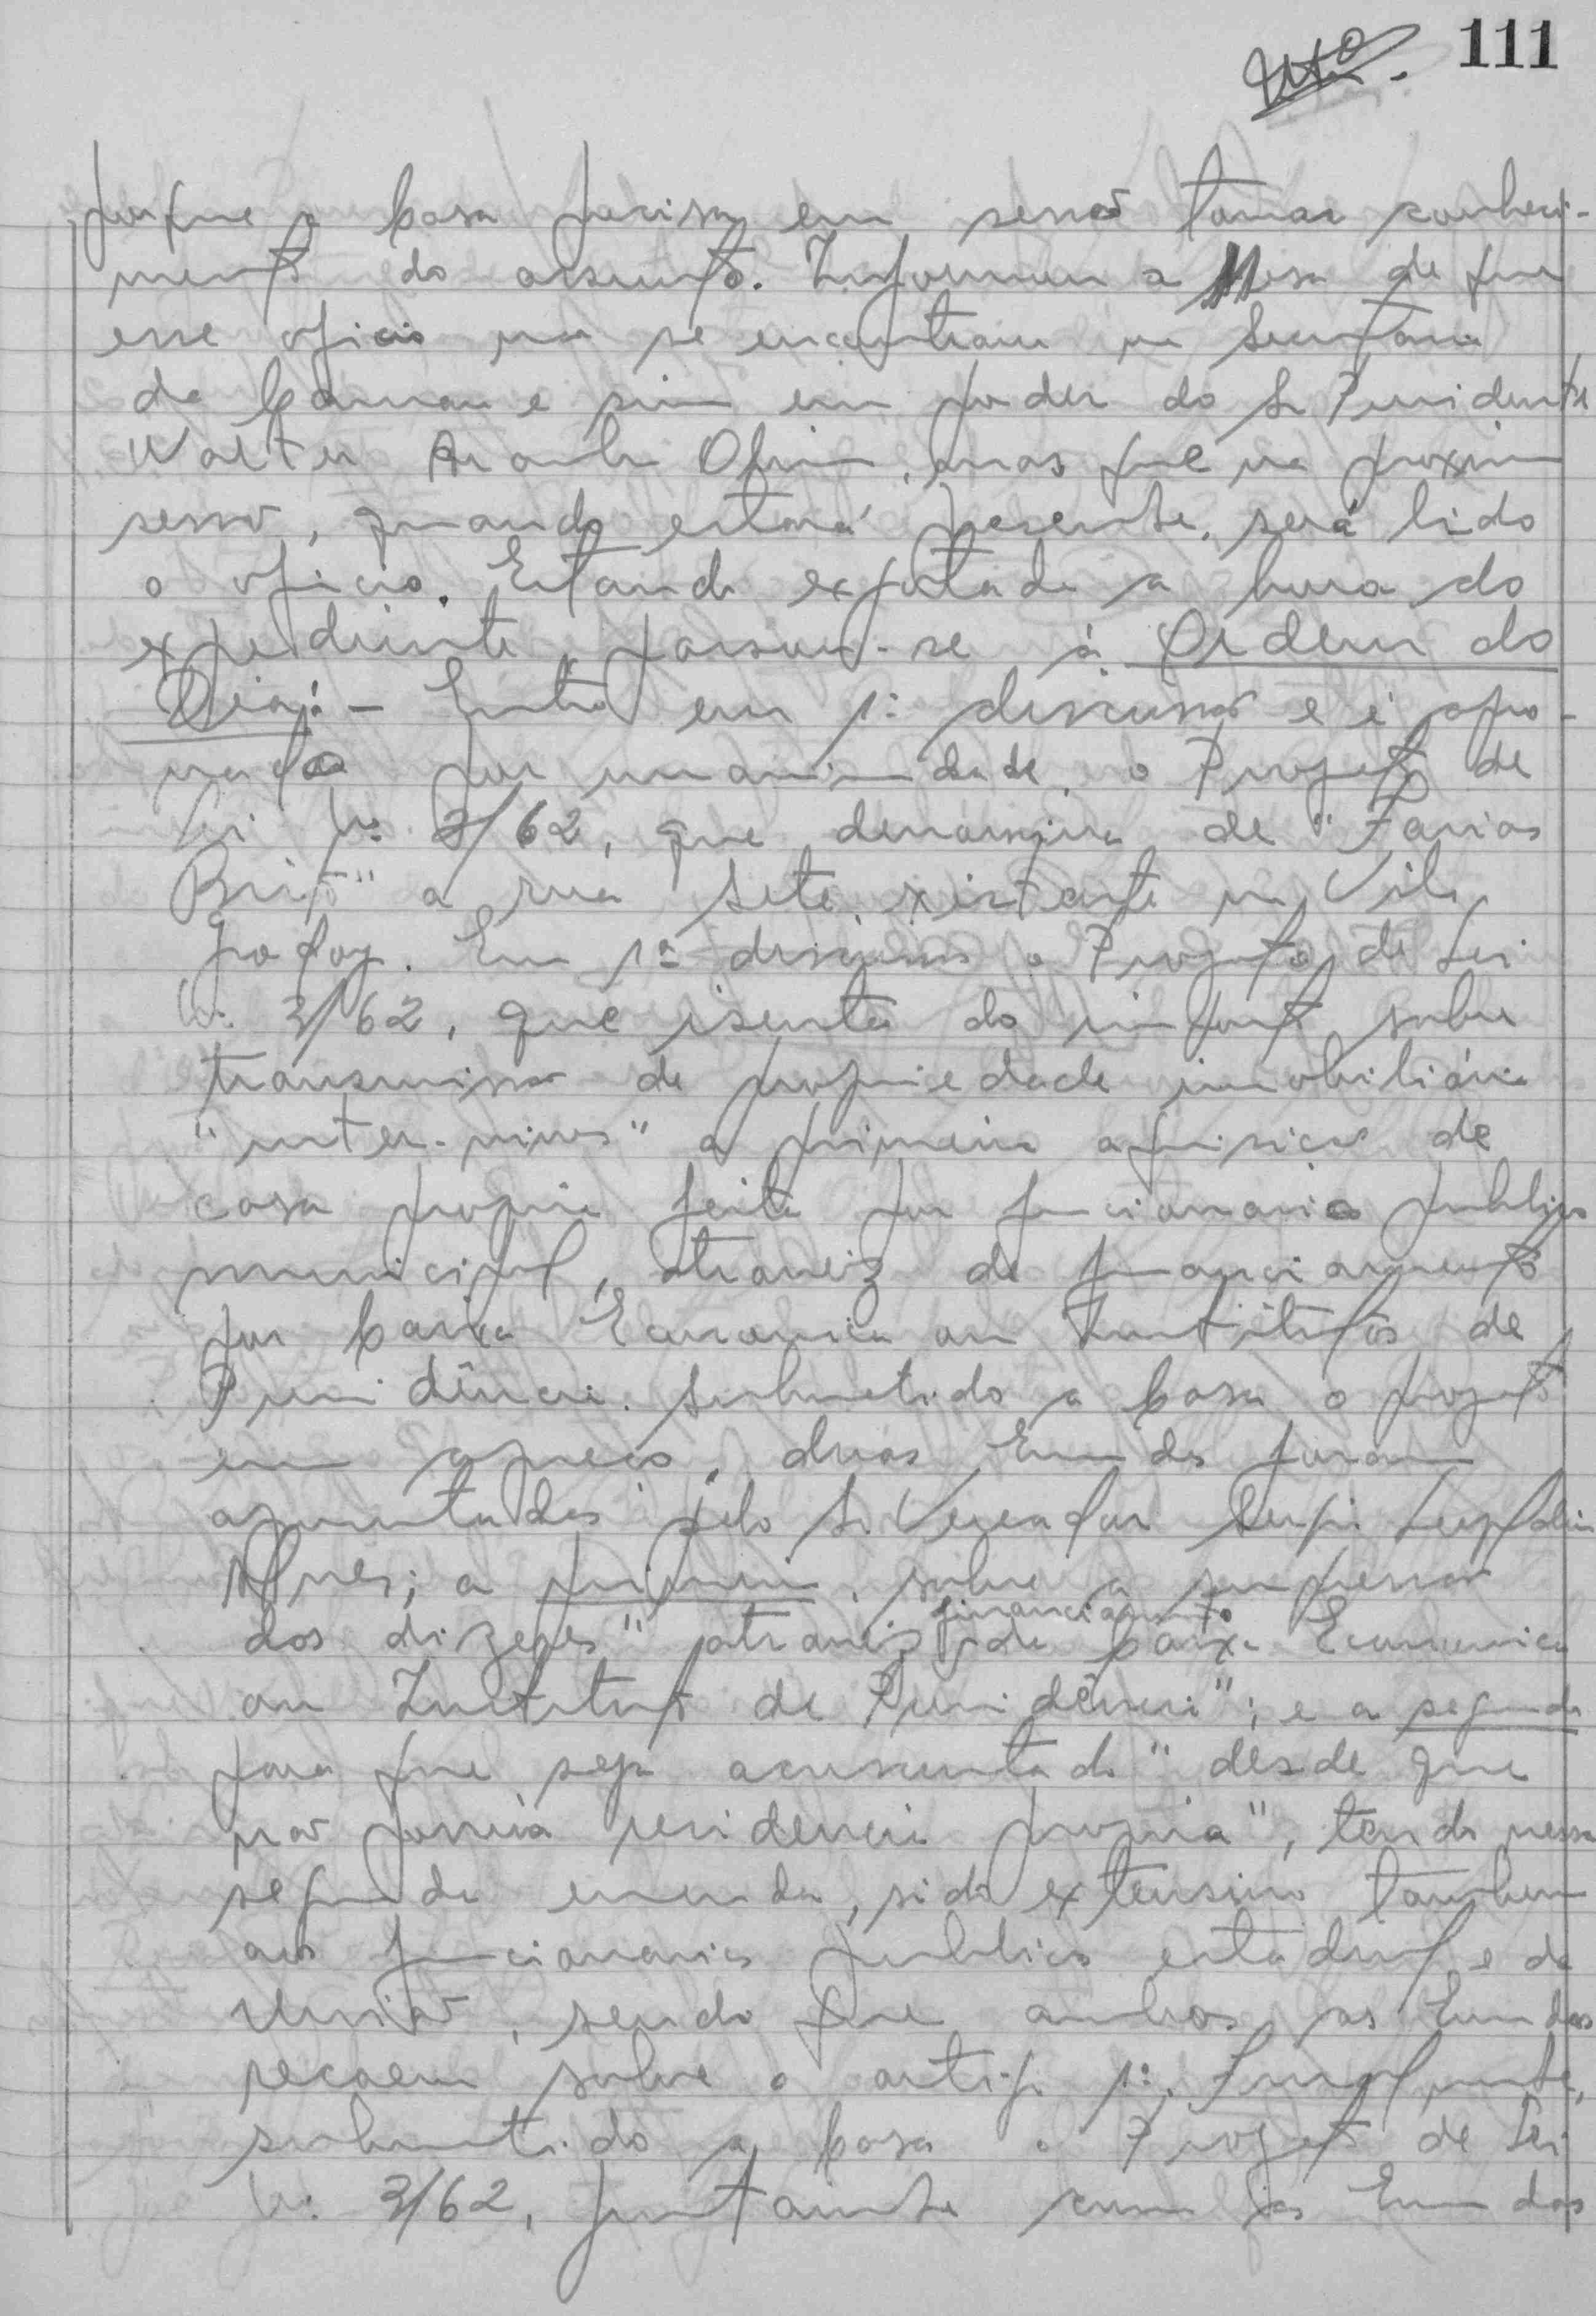 111
porque a Casa precisa em sessão tomar conheci-
mento do assunto. Informou a Mesa de que
esse oficio não se encontrava na Secretaria
da Camara e sim em poder do Sr Presidente
Walter, mas que na proxima
sessão, quando estará presente, será lido
o oficio. Estando esgotada a hora do
expediente, passou-se à Ordem do
Dia:- Entra em 1ª discussão e é apro-
vado por unanimidade, o Projeto de
Lei Nº 2/62, que denomina de "Farias
Brito" a rua Sete, existente na Vila
Godoy. Em 1ª discussão o Projeto de Lei
Nº 3/62, que isenta do imposto sobre
transmissão de propriedade imobiliária
"inter-vivos" a primeira aquisição de
casa propria feita por funcionario publico
municipal, atravez de financiamento
por Caixa Economica ou Institutos de
Previdência. Submetido a Casa o projeto
em apreço, duas Emendas foram
apresentadas pelo Sr Vereador
Alves; a primeira, sobre a supressão
dos dizeres "atravez financiamento de Caixa Economica
ou Instituto de Previdência"; e a segunda
para que seja acrescentado "desde que
não possúa residencia propria", tendo nessa
segunda emenda, sido extensivo tambem
aos funcionarios publicos estadual e da
União, sendo que ambas as Emendas
recaem sobre o artigo 1º. Finalmente,
submetido a Casa o Projeto de Lei
Nº 3/62, juntamente com as Emendas